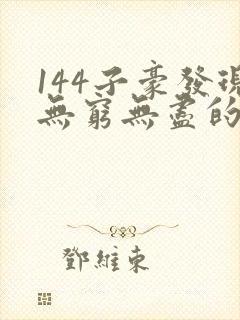 144子豪發現
無窮無盡的
鄧維東